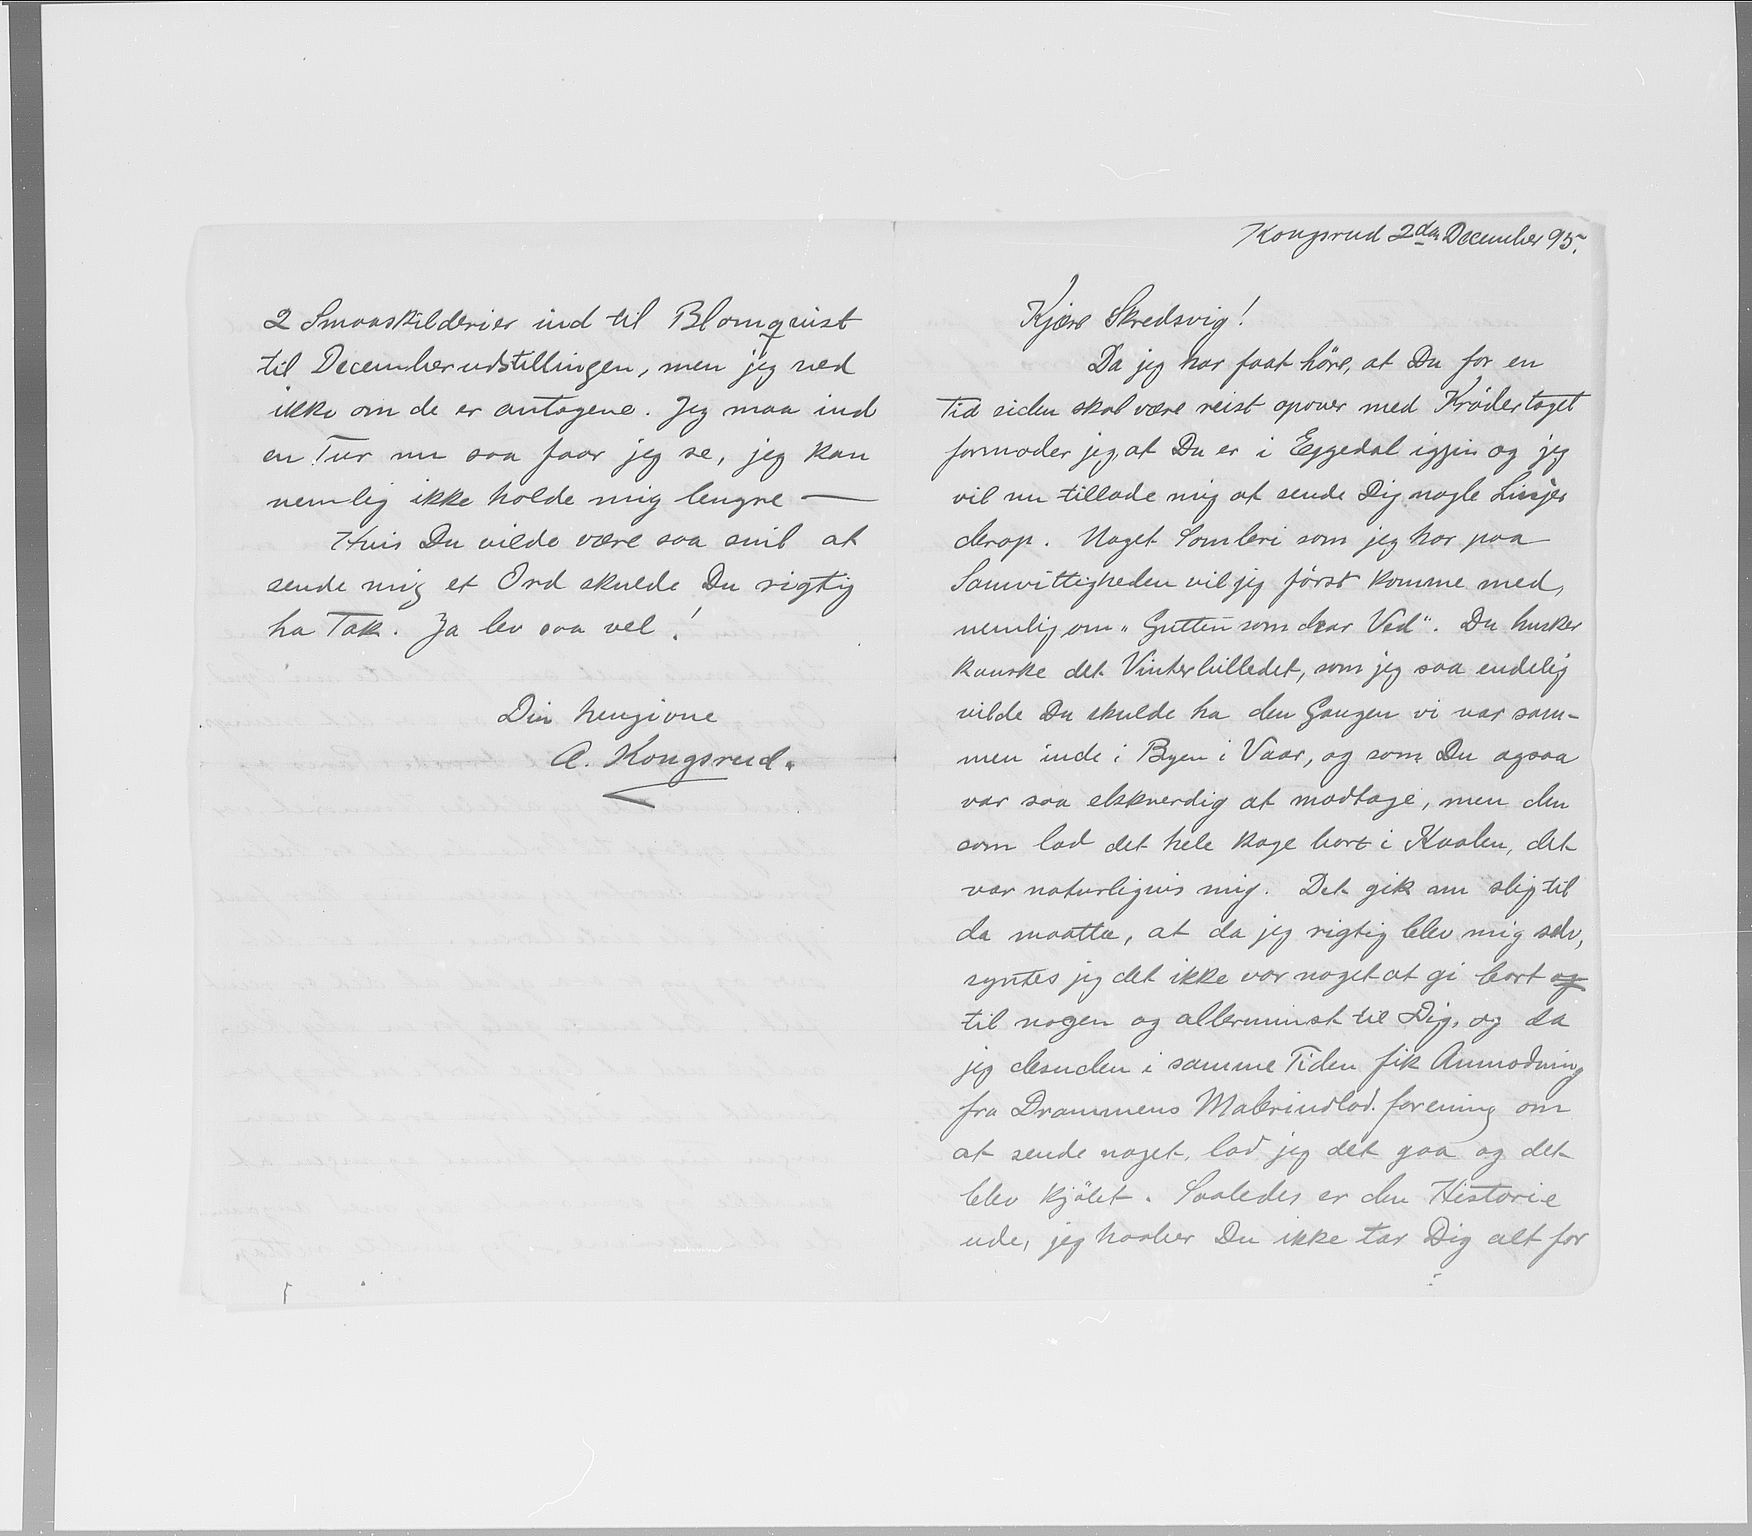 Kongsrud 2den December 95.
Kjære Skredsvig!
Da jeg har faat høre, at Du for en
Tid siden skal være reist opover med Krødertoget
formoder jeg, at Du er i Eggedal igjen og jeg
vil nu tillade mig at sende Dig nogle Linjer
derop. Noget Somleri som jeg har paa
Samvittigheden vil jeg först komme med,
nemlig om „Gutten som drar Ved". Du husker
kanske det Vinterbilledet, som jeg saa endelig
vilde Du skulde ha den Gangen vi var sam-
men inde i Byen i Vaar, og som Du ogsaa
var saa elskverdig at modtage, men den
som lod det hele koge bort i Kaalen, det
var naturligvis mig. Det gik nu slig til
da maatta, at da jeg rigtig blev mig selv,
syntes jeg det ikke var noget at gi bort og
til nogen og allermindst til Dig, og da
jeg desuden i samme Tiden fik Anmodning
fra Drammens Maleriudlod. forening om
at sende noget, lod jeg det gaa og det
blev kjöbt. Saaledes er den Historie
ude, jeg haaber Du ikke tar Dig alt for
2 Smaaskilderier ind til Blomqvist
til Decemberudstillingen, men jeg ved
ikke om de er antagene. Jeg maa ind
en Tur nu saa faar jeg se, jeg kan
nemlig ikke holde mig lengre —
Hvis Du vilde være saa snil at
sende mig et Ord skulde Du rigtig
ha Tak. Ja lev saa vel!
Din hengivne
A. Kongsrud.